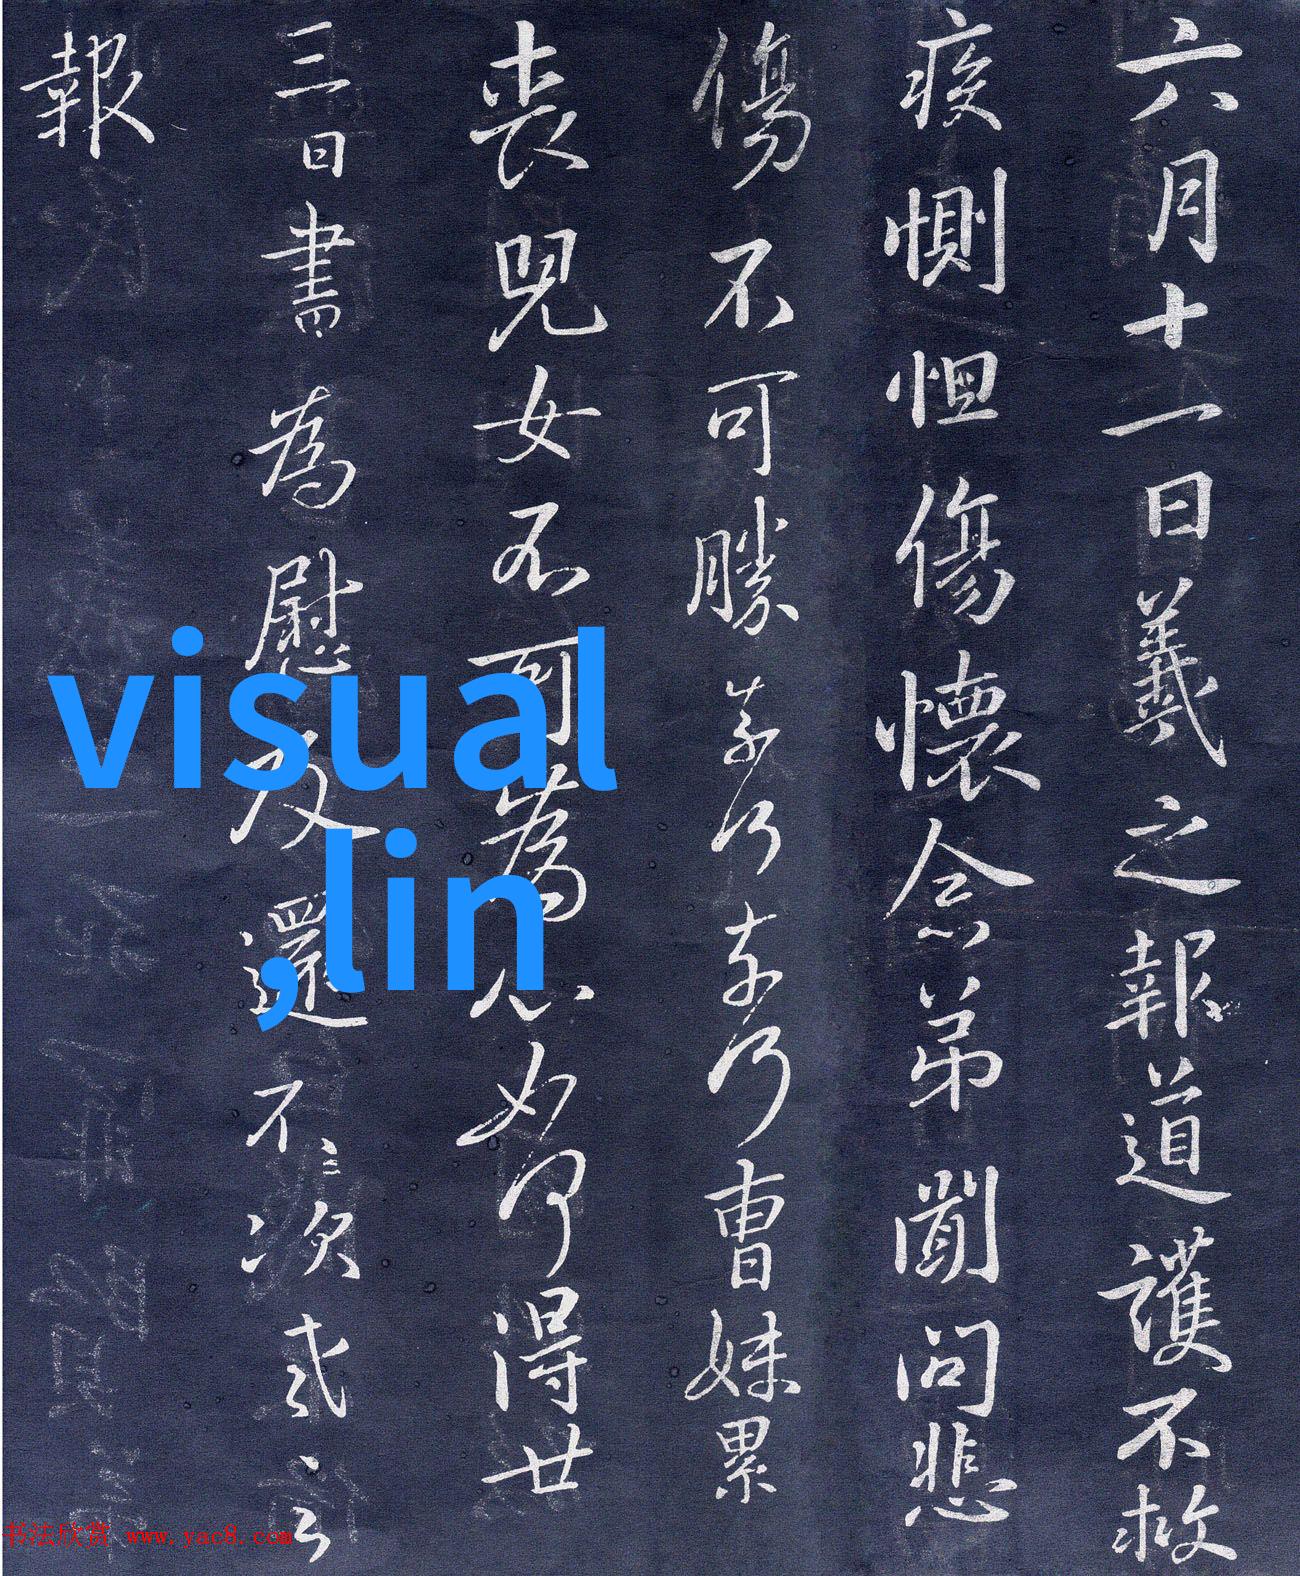 六月十一日羲之報道護不救
疾惻怛傷懷念弟聞問悲
傷不可勝奈何奈何曹妹累
喪兒女不可為心如何得廿
三日書為慰及還不次羲之
報
visual
,lin
书法欣赏 www.yac8.com